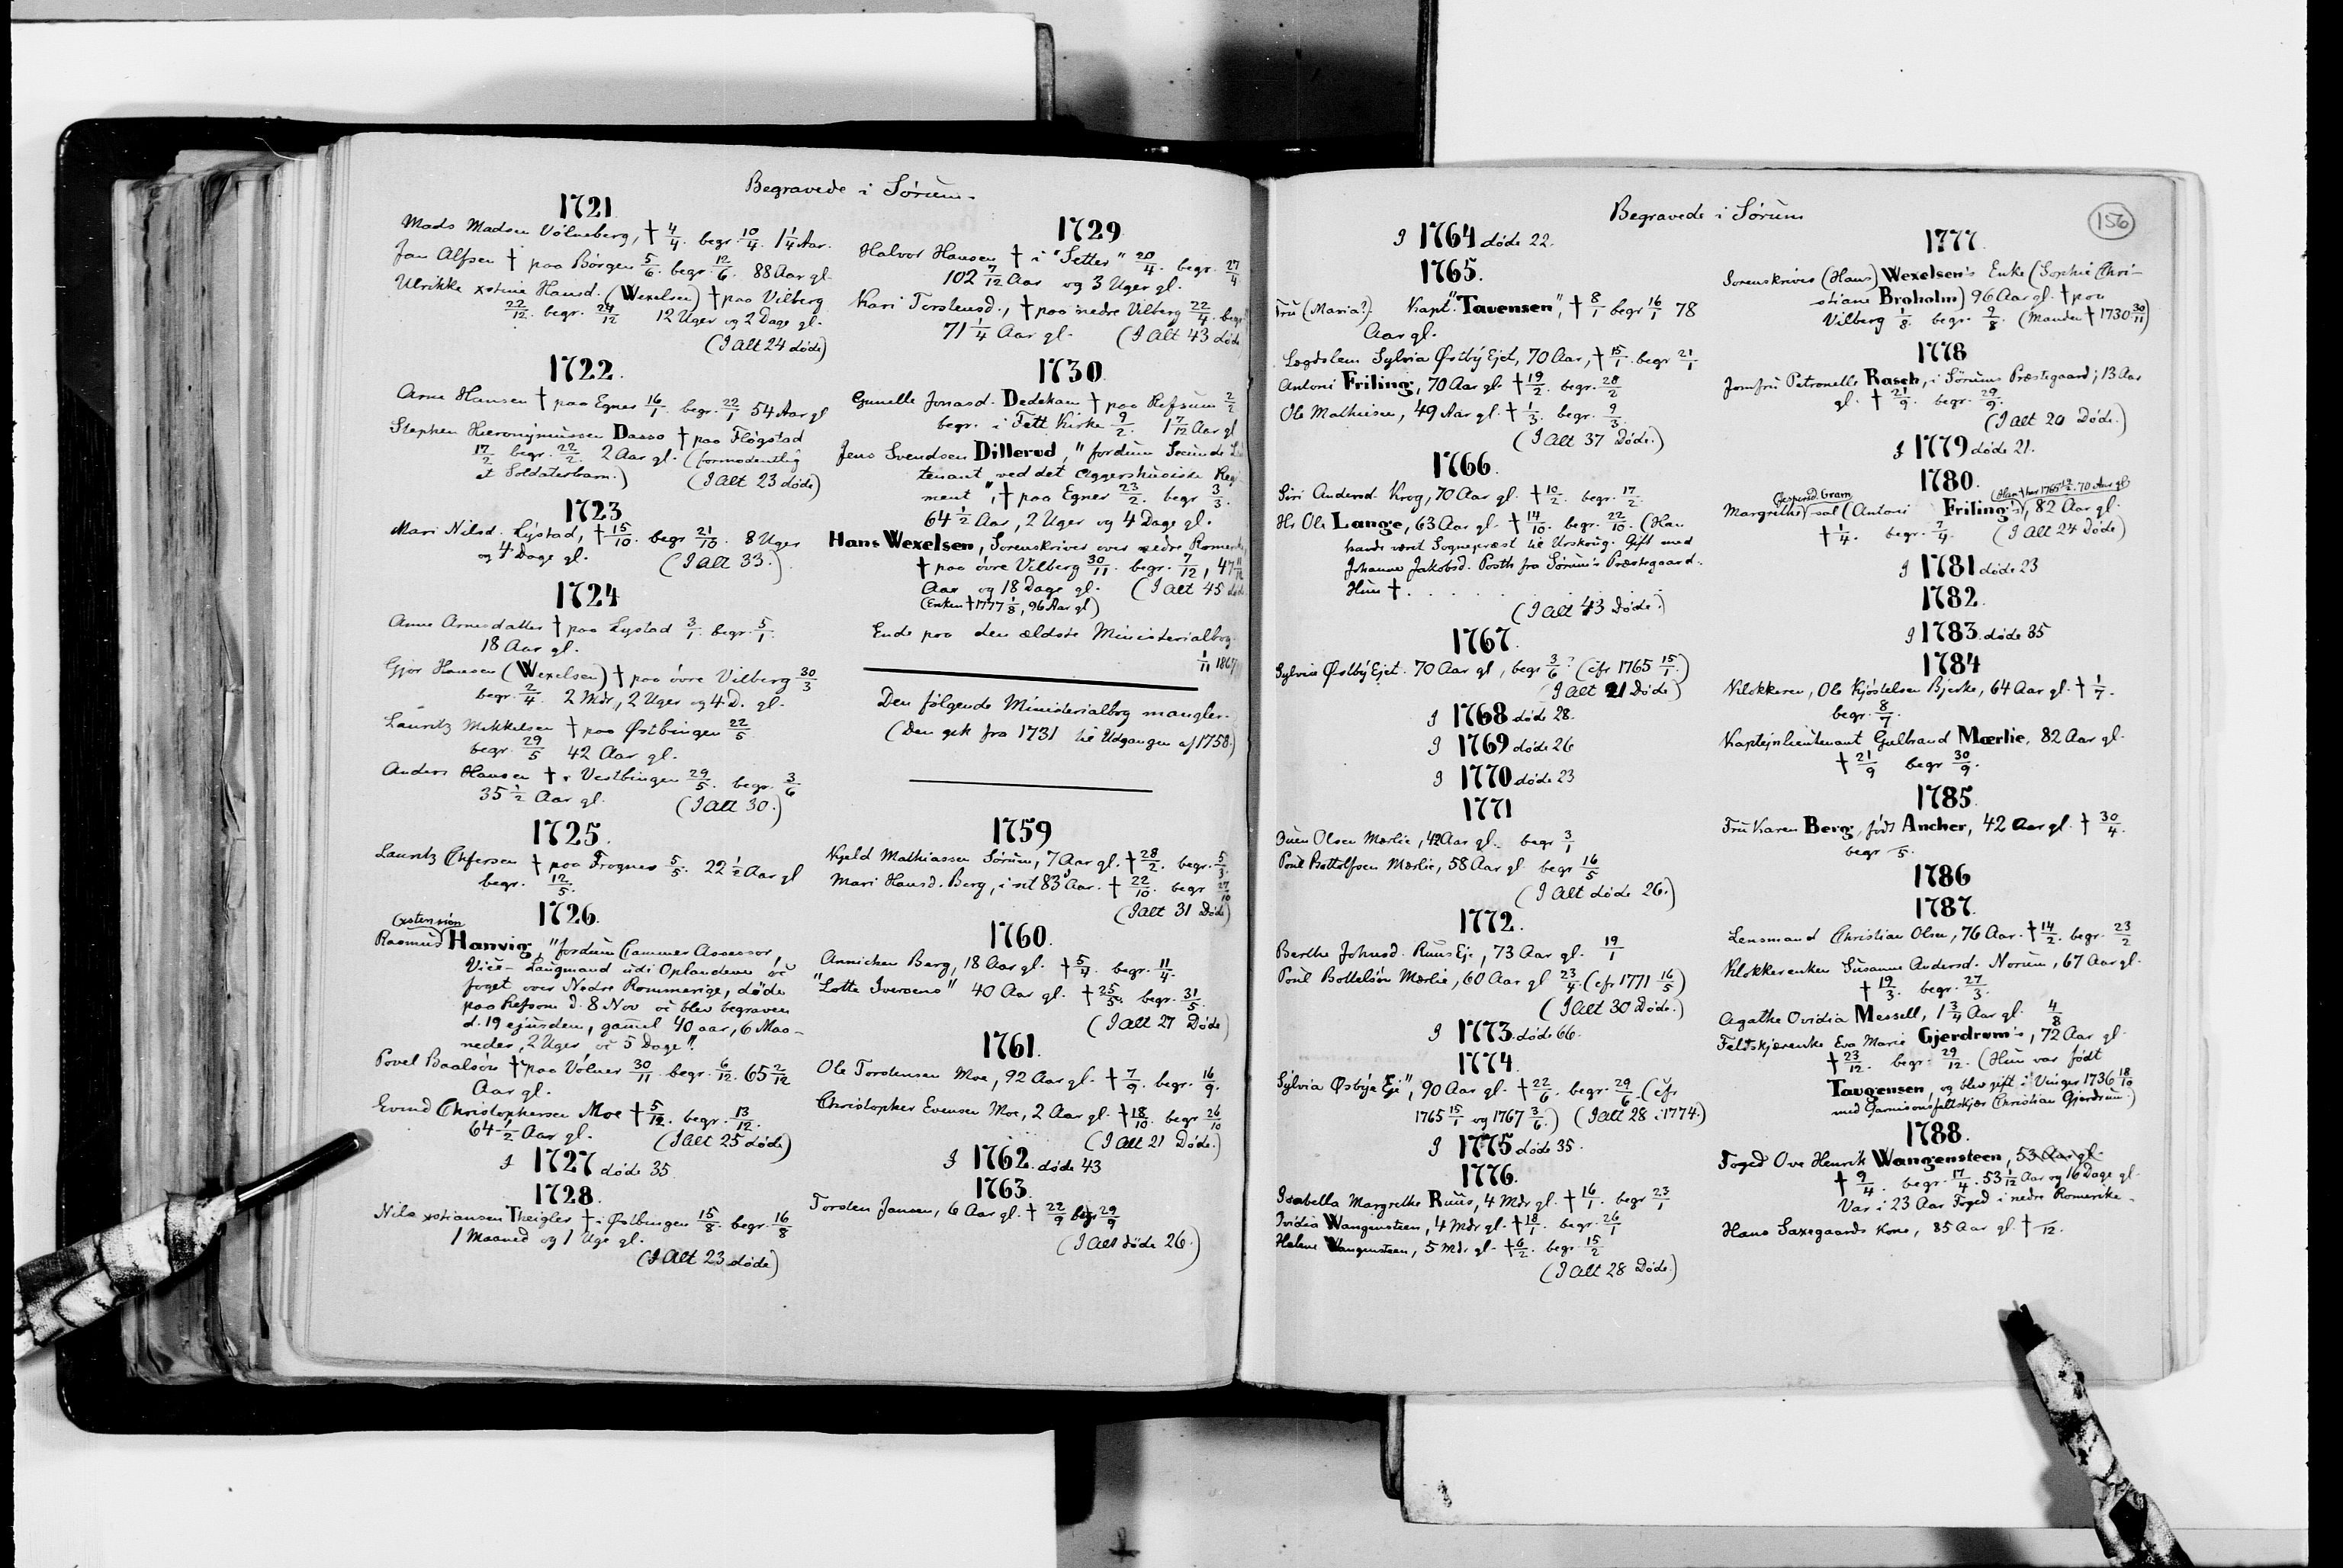 Begravede i Sörum.
1721
Mads Madsen Völneberg, † 4/4. begr. 10/4. 1 1/4 Aar.
Jan Alfsen † paa Börgen 5/6. begr. 12/6. 88 Aar gl.
Ulrikke xstine Hansd. (Wexelsen) † paa Vilberg
22/12. begr. 29/12 12 Uger og 2 Dage gl.
(I Alt 24 døde)
1722.
Arne Hansen † paa Egner 16/1. begr. 22/1 54 Aar gl
Stephen Hieronymussen Dasso † paa Flögstad
17/2 begr. 22/2. 2 Aar gl. (formodentlig
et Soldaterbarn.) (I Alt 23 døde)
1723
Mari Nilsd. Lystad, † 15/10. begr 21/10. 8 Uger
og 4 Dage gl. (I Alt 33.)
1724
Anne Arnesdatter † paa Lystad 3/1. begr. 5/1.
18 Aar gl.
Gjor Hansen (Wexelsen) † paa övre Vilberg 30/3
begr. 2/4. 2 Mdr, 2 Uger og 4 D. gl.
Lauritz Mikkelsen † paa Østbingen 22/5
begr. 29/5 42 Aar gl.
Anders Hansen † i Vestbingen 29/5. begr. 3/6
35 1/2 Aar gl. (I Alt 30.)
1725.
Lauritz † paa Frogner 5/5. 22 1/2 Aar gl
begr. 12/5.
1726.
(xstensön
Rasmus Hanvig, "fordum Cammer Assessor,
Vice-Laugmand udi Oplandene oc
foget over Nedre Rommerige, døde
paa Refsom d. 8 Nov oc blev begraven
d. 19 ejusdem, gamel 40 aar, 6 Maa-
neder, 2 Uger oc 5 Dage".
Povel Paalsön † paa Völner 30/11. begr. 6/12. 65 2/12
Aar gl.
Evend Christophersen Moe † 5/12. begr. 13/12.
64 1/2 Aar gl. (I Alt 25 døde)
I 1727 døde 35
1728.
Nils xstiansen Theigler † i Østbingen 15/8. begr. 16/8
1 Maaned og 1 Uge gl.
(I Alt 23 døde)
1729
Halvor Hansen † i "Setter" 20/4. begr. 27/4
102 7/12 Aar og 3 Uger gl.
Kari Torstensd., † paa nedre Vilberg 22/4. begr
71 1/4 Aar gl. (I Alt 43 døde
1730
Gunelle Jonasd. Dedekam † paa Refsum 2/2
begr. i Fett Kirke 9/2. 1 7/12 Aar gl
Jens Svendsen Dillerud, "fordum Secunde
tenant ved det Aggershusiske Reg
ment", † paa Egner 23/2. begr 3/3.
64 1/2 Aar, 2 Uger og 4 Dage gl.
Hans Wexelsen, Sorenskriver over nedre Romerike,
† paa övre Vilberg 30/11. begr. 7/12, 47 11/12
Aar og 18 Dage gl. (I Alt 45 døde
(Enken † 1777 1/8, 96 Aar gl)
Ende paa den ældste Ministerialbog
1/11 1867
Den følgende Ministerialbog mangler.
(Den gik fra 1731 til Udgangen af 1758.)
1759
Kjeld Mathiassen Sörum, 7 Aar gl. † 28/2. begr. 5/3.
Mari Hansd. Berg, i sit 83' Aar. † 22/10. begr 27/10
(I alt 31 Døde)
1760.
Annichen Berg, 18 Aar gl. † 5/4. begr. 11/4.
"Lotte Iversens" 40 Aar gl. † 25/5. begr. 31/5.
(I Alt 27 Døde)
1761.
Ole Torstensen Moe, 92 Aar gl. † 7/9. begr. 16/9.
Christopher Evensen Moe, 2 Aar gl † 18/10. begr 26/10
(I Alt 21 Døde.)
I 1762. døde 43
1763.
Torsten Jansen, 6 Aar gl. † 22/9 begr 29/9
(I Alt døde 26.)
Begravede i Sörum
156
I 1764 døde 22.
1765.
Fru (Maria?) Kapt. "Tavensen", † 8/1 begr 16/1 78
Aar gl.
Legdslem Sylvia Østby Ejet, 70 Aar, † 15/1. begr 21/1
Antoni Friling, 70 Aar gl. † 19/2. begr. 28/2
Ole Mathiesen, 49 Aar gl. † 1/3. begr. 9/3.
(I Alt 37 Døde.)
1766.
Siri Andersd. Krog, 70 Aar gl. † 10/2. begr. 17/2.
Hr Ole Lange, 63 Aar gl. † 14/10. begr. 22/10. (Han
havde været Sognepræst til Urskoug. Gift med
Johanne Jakobsd. Posth fra Sörum's Præstegaard.
Hun † . . . . . .
(I Alt 43 Døde.)
1767.
Sylvia Østby Ejet. 70 Aar gl, begr 3/6? (cfr 1765 15/1.)
(I Alt 21 Døde)
I 1768 døde 28.
I 1769 døde 26
I 1770 døde 23
1771
Suen Olsen Mærlie, 42 Aar gl. begr 3/1
Poul Bottolfsen Mærlie, 58 Aar gl begr 16/5
(I Alt døde 26.)
1772.
Berthe Johnsd. Ruus Eje, 73 Aar gl. 19/1
Poul Bottelsön Mærlie, 60 Aar gl 23/4. (cfr 1771 16/5)
(I Alt 30 Døde.)
I 1773. døde 66.
1774.
Sylvia Østbye Eje", 90 Aar gl. † 22/6. begr. 29/6. (cfr
1765 15/1 og 1767 3/6.) (I Alt 28 i 1774.)
I 1775 døde 35.
1776.
Isabella Margrethe Ruus, 4 Mdr gl. † 16/1. begr 23/1
Ovidia Wangensteen, 4 Mdr gl. † 18/1. begr. 26/1
Helene Wangensteen, 5 Mdr gl. † 6/2. begr 15/2
(I Alt 28 Døde.)
1777.
Sorenskriver (Hans) Wexelsen's Enke (Sophie Chri-
stiane Broholm) 96 Aar gl. † paa
Vilberg 1/8. begr. 9/8. (Manden † 1730 30/11)
1778
Jomfru Petronelle Rasch, i Sörums Præstegaard, 13 Aar
gl. † 21/9. begr. 29/9.
(I Alt 20 Døde.)
I 1779 døde 21.
1780.
Jespersd. Gram (Han † her 1765 19/2. 70 Aar gl)
Margrethe sal (Antoni Friling's), 82 Aar gl.
† 1/4. begr. 7/4. (I Alt 24 Døde)
I 1781 døde 23
1782.
I 1783. døde 35
1784
Klokkeren, Ole Kjöstelsen Bjerke, 64 Aar gl. † 1/7.
begr. 8/7.
Kaptejnlieutenant Gulbrand Mærlie, 82 Aar gl.
† 21/9 begr 30/9.
1785.
Fru Karen Berg, født Ancher, 42 Aar gl. † 30/4.
begr /5.
1786
1787.
Lensmand Christian Olsen, 76 Aar. † 14/2. begr. 23/2
Klokkerenken Susanne Andersd. Norum, 67 Aar gl.
† 19/3. begr. 27/3.
Agathe Ovidia Messell, 1 3/4 Aar gl. 4/8
Feltskjærenke Eva Marie Gjerdrum's, 72 Aar gl.
† 23/12. begr. 29/12. (Hun var født
Tavgensen, og blev gift i Vinger 1736 18/10
med Garnisonsfeltskjær Christian Gjerdrum.)
1788.
Foged Ove Henrik Wangensteen, 53 Aar gl.
† 9/4. begr. 17/4. 53 1/12 Aar og 16 Dage gl.
Var i 23 Aar Foged i nedre Romerike.
Hans Saxegaards Kone, 85 Aar gl. † /12.